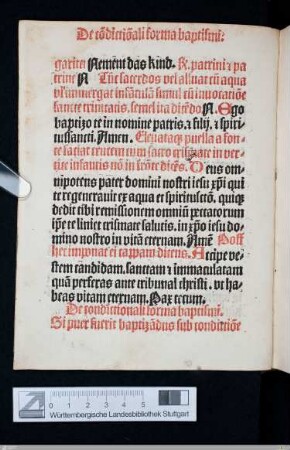 De cõdictiõali forma baptismi:
garitẽ Nement das kind. R. patrini ⁊ pa
trine N Tũc sacerdos vel alluat cũ aqua
vl' immergat infãtulũ simul cũ inuocatiõe
sancte trinitatis, semel ita dicẽdo N. Ego
baptizo te in nomine patris. ⁊ filij. ⁊ spiri
tussancti. Amen. Eleuataq; puella a fon
te faciat crucem cum sacro crismate in ver
tice infantis nõ in frõte dicẽs. Deus om
nipotens pater domini nostri iesu xp̃i qui
te regenerauit ex aqua et spiritusctõ. quiq;
dedit tibi remissionem omniũ peccatorum
ip̃e te liniet crismate salutis. in xp̃o iesu do
mino nostro in vitã eternam. Amẽ Post
hec imponat ei cappam dicens. Accipe ve
stem candidam. sanctam ⁊ immaculatam
quã perferas ante tribunal christi. vt ha
beas vitam eternam. Pax tecum.
De conditionali forma baptismi.
Si puer fuerit baptizãdus sub conditiõe
cm
0 1 2 3 4 5
Württembergische Landesbibliothek Stuttgart